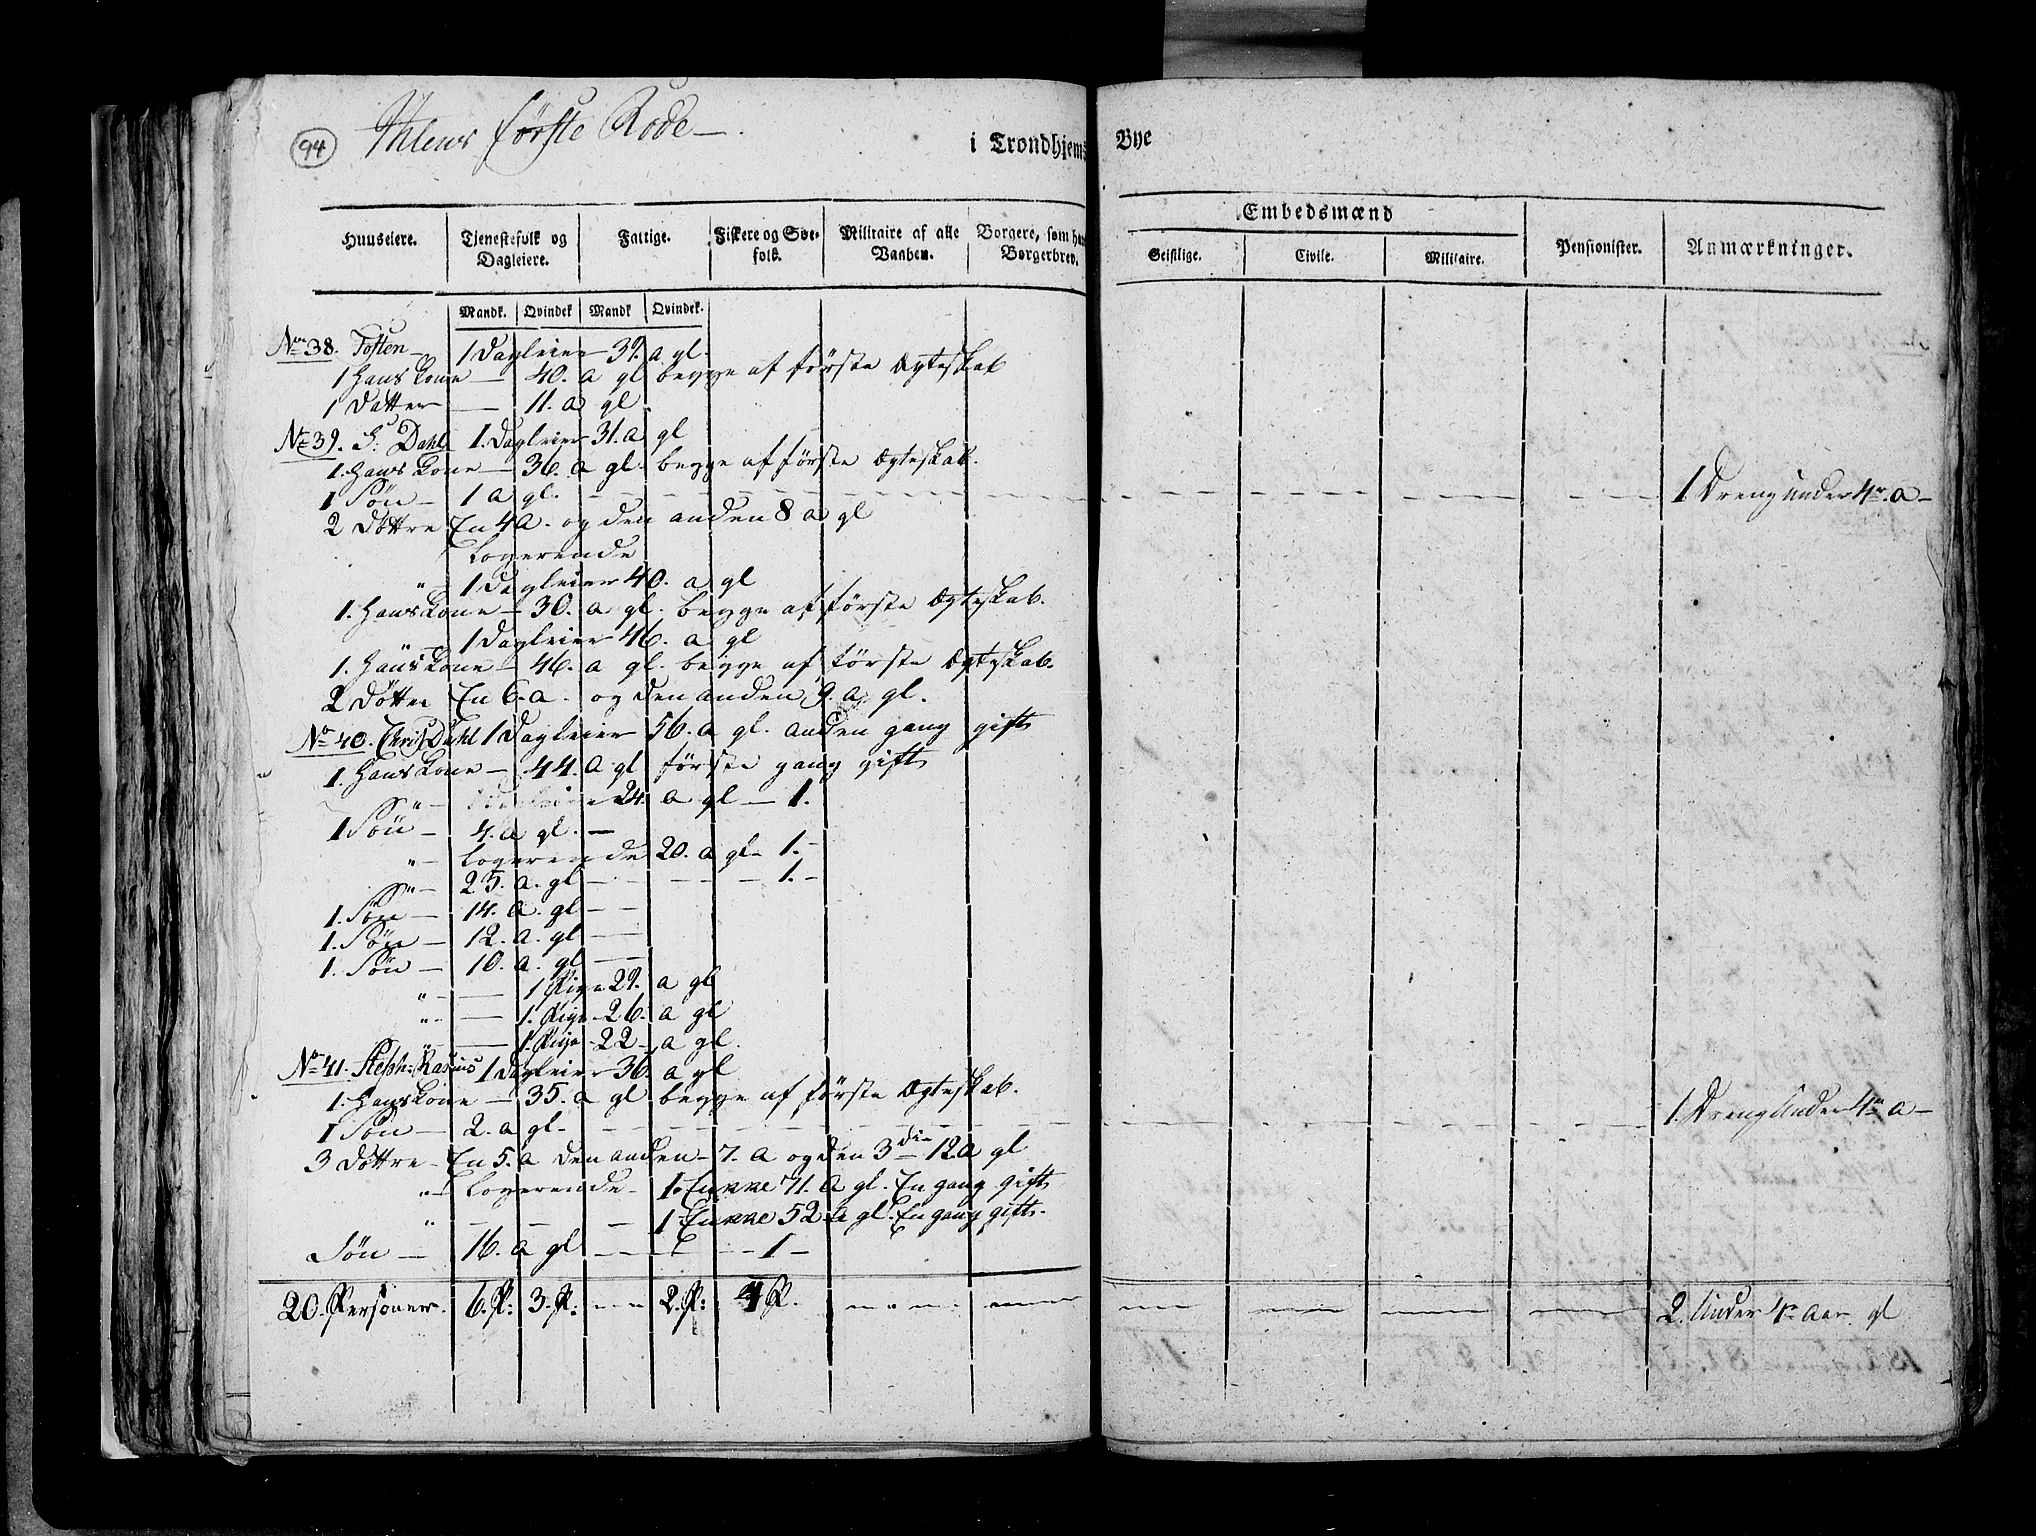 94
Ihlens første Rode
i Trondhjems Bye
Huuseiere.
Tjenestefolk og Dagleiere.
Fattige.
Fiskere og Søefolk.
Militaire af alle Vaaben.
Borgere, som have Borgerbrev.
Embedsmænd
Geistlige.
Civile.
Militaire.
Pensionister.
Anmærkninger.
Mandk. Qvindek Mandk Qvindek.
No 38. Tosten 1 Dagleier 39. a gl.
1 Hans Kone — 40. a gl begge af første Ægteskab
1 Datter — 11. a gl.
No 39. Dahl 1. Dagleier 31. a gl
1. Hans Kone — 36. a gl. begge af første Ægteskab.
1 Søn — 1 a gl. — 1 Dreng under 4re a —
2 Døttre En 4 a. og den anden 8 a gl
Logerende
" — 1 Dagleier 40. a gl
1. Hans Kone — 30. a gl. begge af første Ægteskab.
" 1 Dagleier 46. a gl
1. Hans Kone — 46. a gl. begge af første Ægteskab.
2 Døtte En 6. a. og den anden 9. a gl.
No 40. Chris Dahl 1 Dagleier 56. a gl. anden gang gift
1. Hans Kone — 44. a gl første gang gift
" — 24. a gl — 1.
1 Søn — 4. a gl. —
" — Logerende 20. a gl — 1. —
" — 25. a. gl — 1. —
1. Søn — 14. a. gl — —
1. Søn — 12. a. gl — —
1. Søn — 10. a. gl — —
" — — 1 Pige 29. a gl
" — — 1. Pige 26. a gl
" — 1. Pige 22 — a gl.
No 41. Steph: Rasmus 1 Dagleier 36. a gl
1. Hans Kone — 35. a gl begge af første Ægteskab.
1 Søn — 2. a gl — 1. Dreng Under 4re a —
3 Døttre — En 5. a den anden — 7. a og den 3die 12 a gl
" — Logerende — 1. Enkke 71. a gl. En gang gift
" — — — 1 Enkke 52. a gl. En gang gift.
Søn — 16. a gl — — 1 —
20. Personer. 6. P: 3. P: — 2. P: 4 P. — 2. Under 4re Aar gl